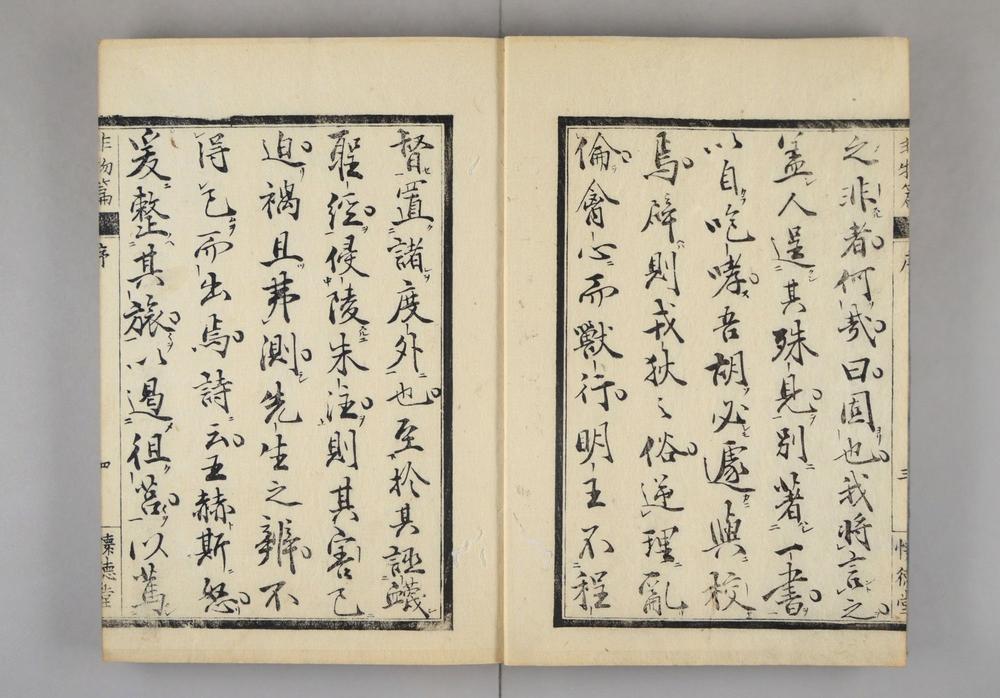 之非者何哉曰固也我將言之
盖人逞其殊見別著一書
以自咆哮吾胡必遽與校
焉辟則戎狄之俗逆理亂
倫禽心而獸行明王不程
督置諸度外也至於其誣蠛
聖經侵陵朱注則其害已
迫禍且弗測先生之辨不
得已而出焉詩云王赫斯怒
爰整其旅以遏徂莒以篤
非物篇
序
三
懷德堂
非物篇
序
四
懷德堂